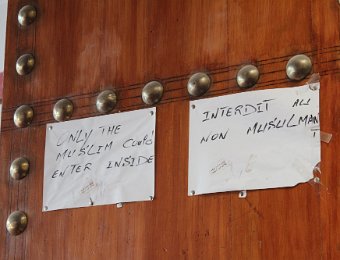 ONLY THE
MUSLIM COULD
ENTER INSIDE
INTERDIT AU
NON MUSULMAN